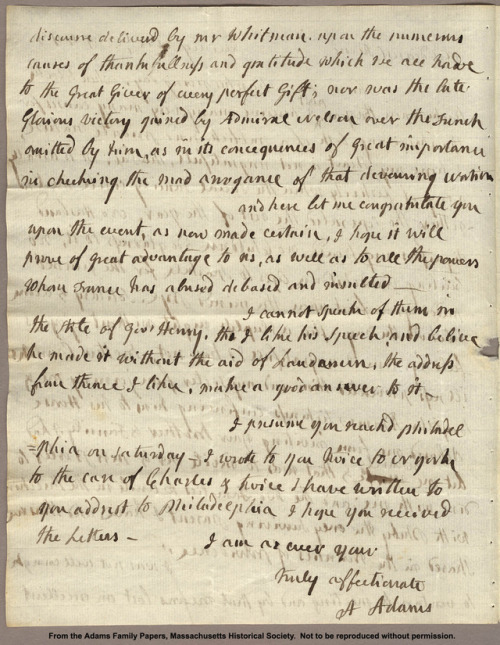 discourse deliverd by mr Whitman. upon the numerous
causes of thankfullness and gratitude which we all have
to the Great Giver of every perfect Gift; nor was the late
Glorious victory gained by Admiral Nelson over the French
omitted by him, as in its concequences of great importance
in checking the mad arrogance of that devouring Nation
and here let me congratulate you
upon the event, as now made certain, I hope it will
prove of great advantage to us, as well as to all the powers
whom France has abused debased and insulted —
I cannot speak of them in
the stile of Govr Henry. tho I like his speech, and believe
he made it without the aid of Laudanum, the address
from thence I like, make a good answer to it —
I presume you reachd philadel
=phia on saturday — I wrote to you twice to N york
to the care of Charles & twice I have written to
you addresst to Philadelphia I hope you received
the Letters —
I am as ever your
truly affectionate
A Adams
From the Adams Family Papers, Massachusetts Historical Society. Not to be reproduced without permission.